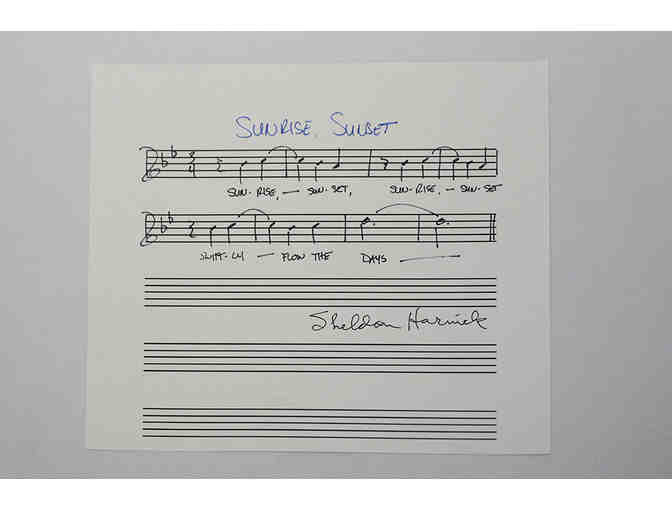 SUNRISE, SUNSET
SUN-RISE, — SUN-SET, SUN-RISE, — SUN-SET
SWIFT-LY — FLOW THE DAYS
Sheldon Harnick